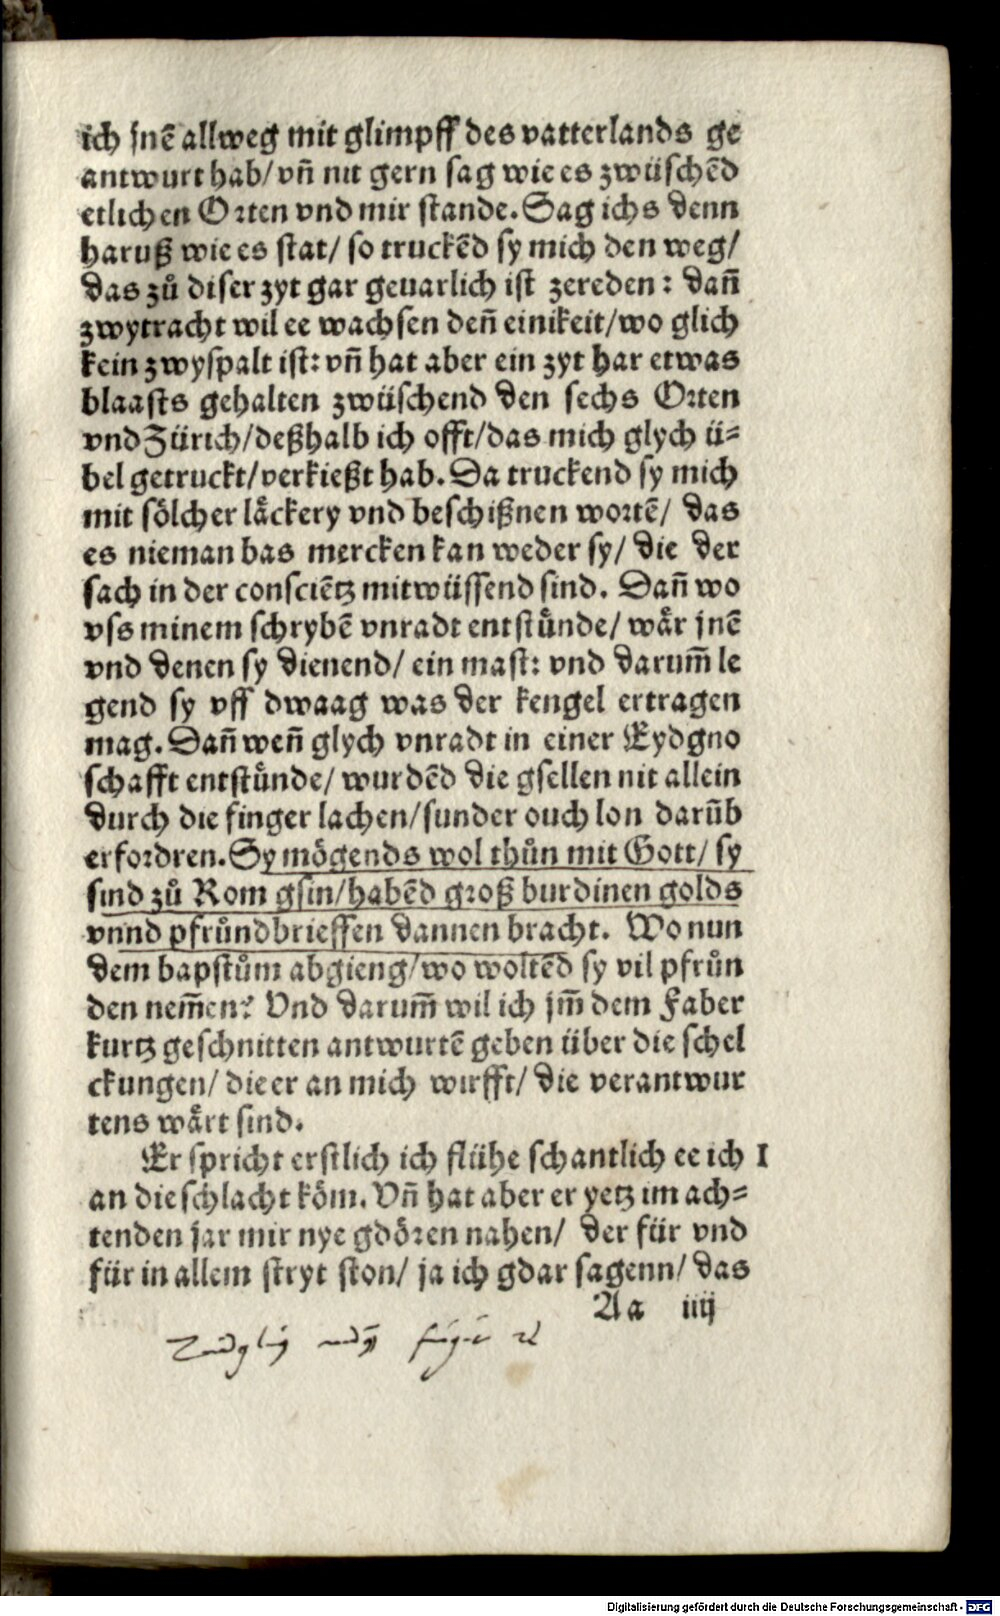 ich jnē allweg mit glimpff des vatterlands ge
antwurt hab/ vn̄ nit gern sag wie es zwüschēd
etlichen Orten vnd mir stande. Sag ichs denn
haruß wie es stat/ so truckēd sy mich den weg/
das zů diser zyt gar geuarlich ist zereden: dañ
zwytracht wil ee wachsen deñ einikeit/ wo glich
kein zwyspalt ist: vn̄ hat aber ein zyt har etwas
blaasts gehalten zwüschend den sechs Orten
vnd Zürich/ deßhalb ich offt/ das mich glych ü⸗
bel getruckt/ verkießt hab. Da truckend sy mich
mit sölcher läckery vnd beschißnen wortē/ das
es nieman bas mercken kan weder sy/ die der
sach in der consciētz mitwüssend sind. Dañ wo
vss minem schrybē vnradt entstůnde/ wår jnē
vnd denen sy dienend/ ein mast: vnd darum̄ le
gend sy vff dwaag was der kengel ertragen
mag. Dañ weñ glych vnradt in einer Eydgno
schafft entstůnde/ wurdēd die gsellen nit allein
durch die finger lachen/ sunder ouch lon darūb
erfordren. Sy mögends wol thůn mit Gott/ sy
sind zů Rom gsin/ habēd groß burdinen golds
vnnd pfrůndbrieffen dannen bracht. Wo nun
dem bapstům abgieng/ wo woltēd sy vil pfrůn
den nem̄en? Vnd darum̄ wil ich jm̄ dem Faber
kurtz geschnitten antwurtē geben über die schel
ckungen/ die er an mich wirfft/ die verantwur
tens wårt sind.
Er spricht erstlich ich flühe schantlich ee ich I
an die schlacht köm. Vn̄ hat aber er yetz im ach⸗
tenden jar mir nye gdören nahen/ der für vnd
für in allem stryt ston/ ja ich gdar sagenn/ das
Aa iiij
Digitalisierung gefördert durch die Deutsche Forschungsgemeinschaft - DFG